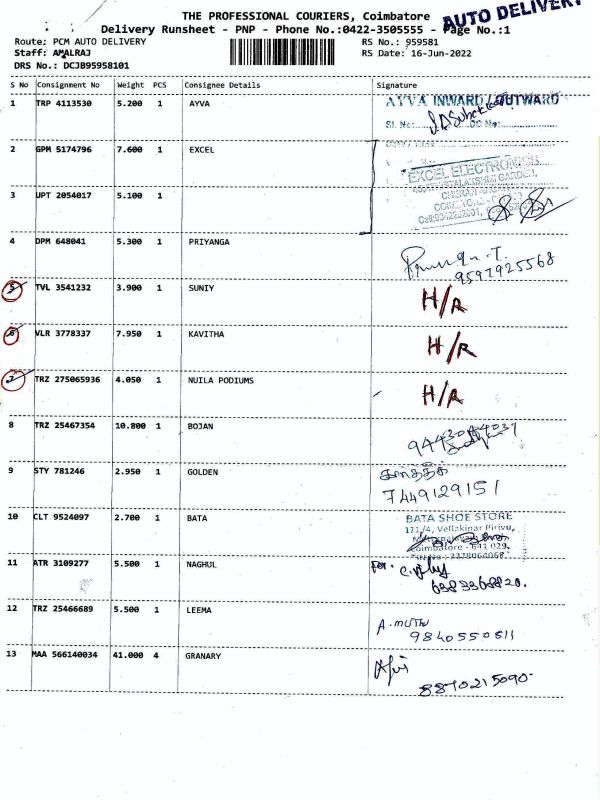 THE PROFESSIONAL COURIERS, Coimbatore
AUTO DELIVERY
Delivery Runsheet - PNP - Phone No.:0422-3505555 - Page No.:1
Route: PCM AUTO DELIVERY
RS No.: 959581
Staff: AMALRAJ
RS Date: 16-Jun-2022
DRS No.: DCJB95958101
S No Consignment No Weight PCS Consignee Details Signature
1 TRP 4113530 5.200 1 AYVA
AYVA INWARD / OUTWARD
Sl. No:
2 GPM 5174796 7.600 1 EXCEL
EXCEL ELECTRONICS
3 UPT 2054017 5.100 1
4 DPM 648041 5.300 1 PRIYANGA
9597925568
5 TVL 3541232 3.900 1 SUNIY H/R
6 VLR 3778337 7.950 1 KAVITHA H/R
7 TRZ 275065936 4.050 1 NUILA PODIUMS H/R
8 TRZ 25467354 10.800 1 BOJAN
9 STY 781246 2.950 1 GOLDEN
7449129151
10 CLT 9524097 2.700 1 BATA
BATA SHOE STORE
171/4, Vellakinar Pirivu,
Coimbatore - 641 029.
11 ATR 3109277 5.500 1 NAGHUL
for.
12 TRZ 25466689 5.500 1 LEEMA
A. MUTHU
9840550611
13 MAA 566140034 41.000 4 GRANARY
8870215090